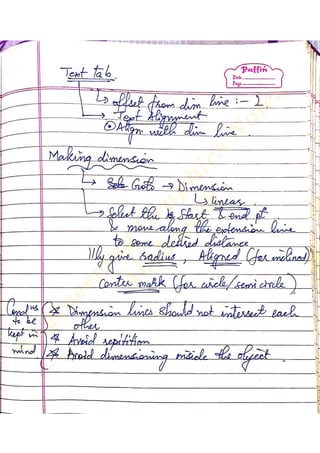 Puffin
Date
Page
Text tab.
↳ offset from dim line :- 2
→ Text Alignment
⊙ Align with dim line.
Making dimension
↳ Goto → Dimension
↳ linear
↳ Select the start & end pt
& move along the extension line
to some desired distance
|||ly give radius, Aligned (for inclined)
center mark (for circle/semicircle)
Condns to be kept in mind
* Dimension lines should not intersect each
other
* Avoid repitition
* Avoid dimensioning inside the object.